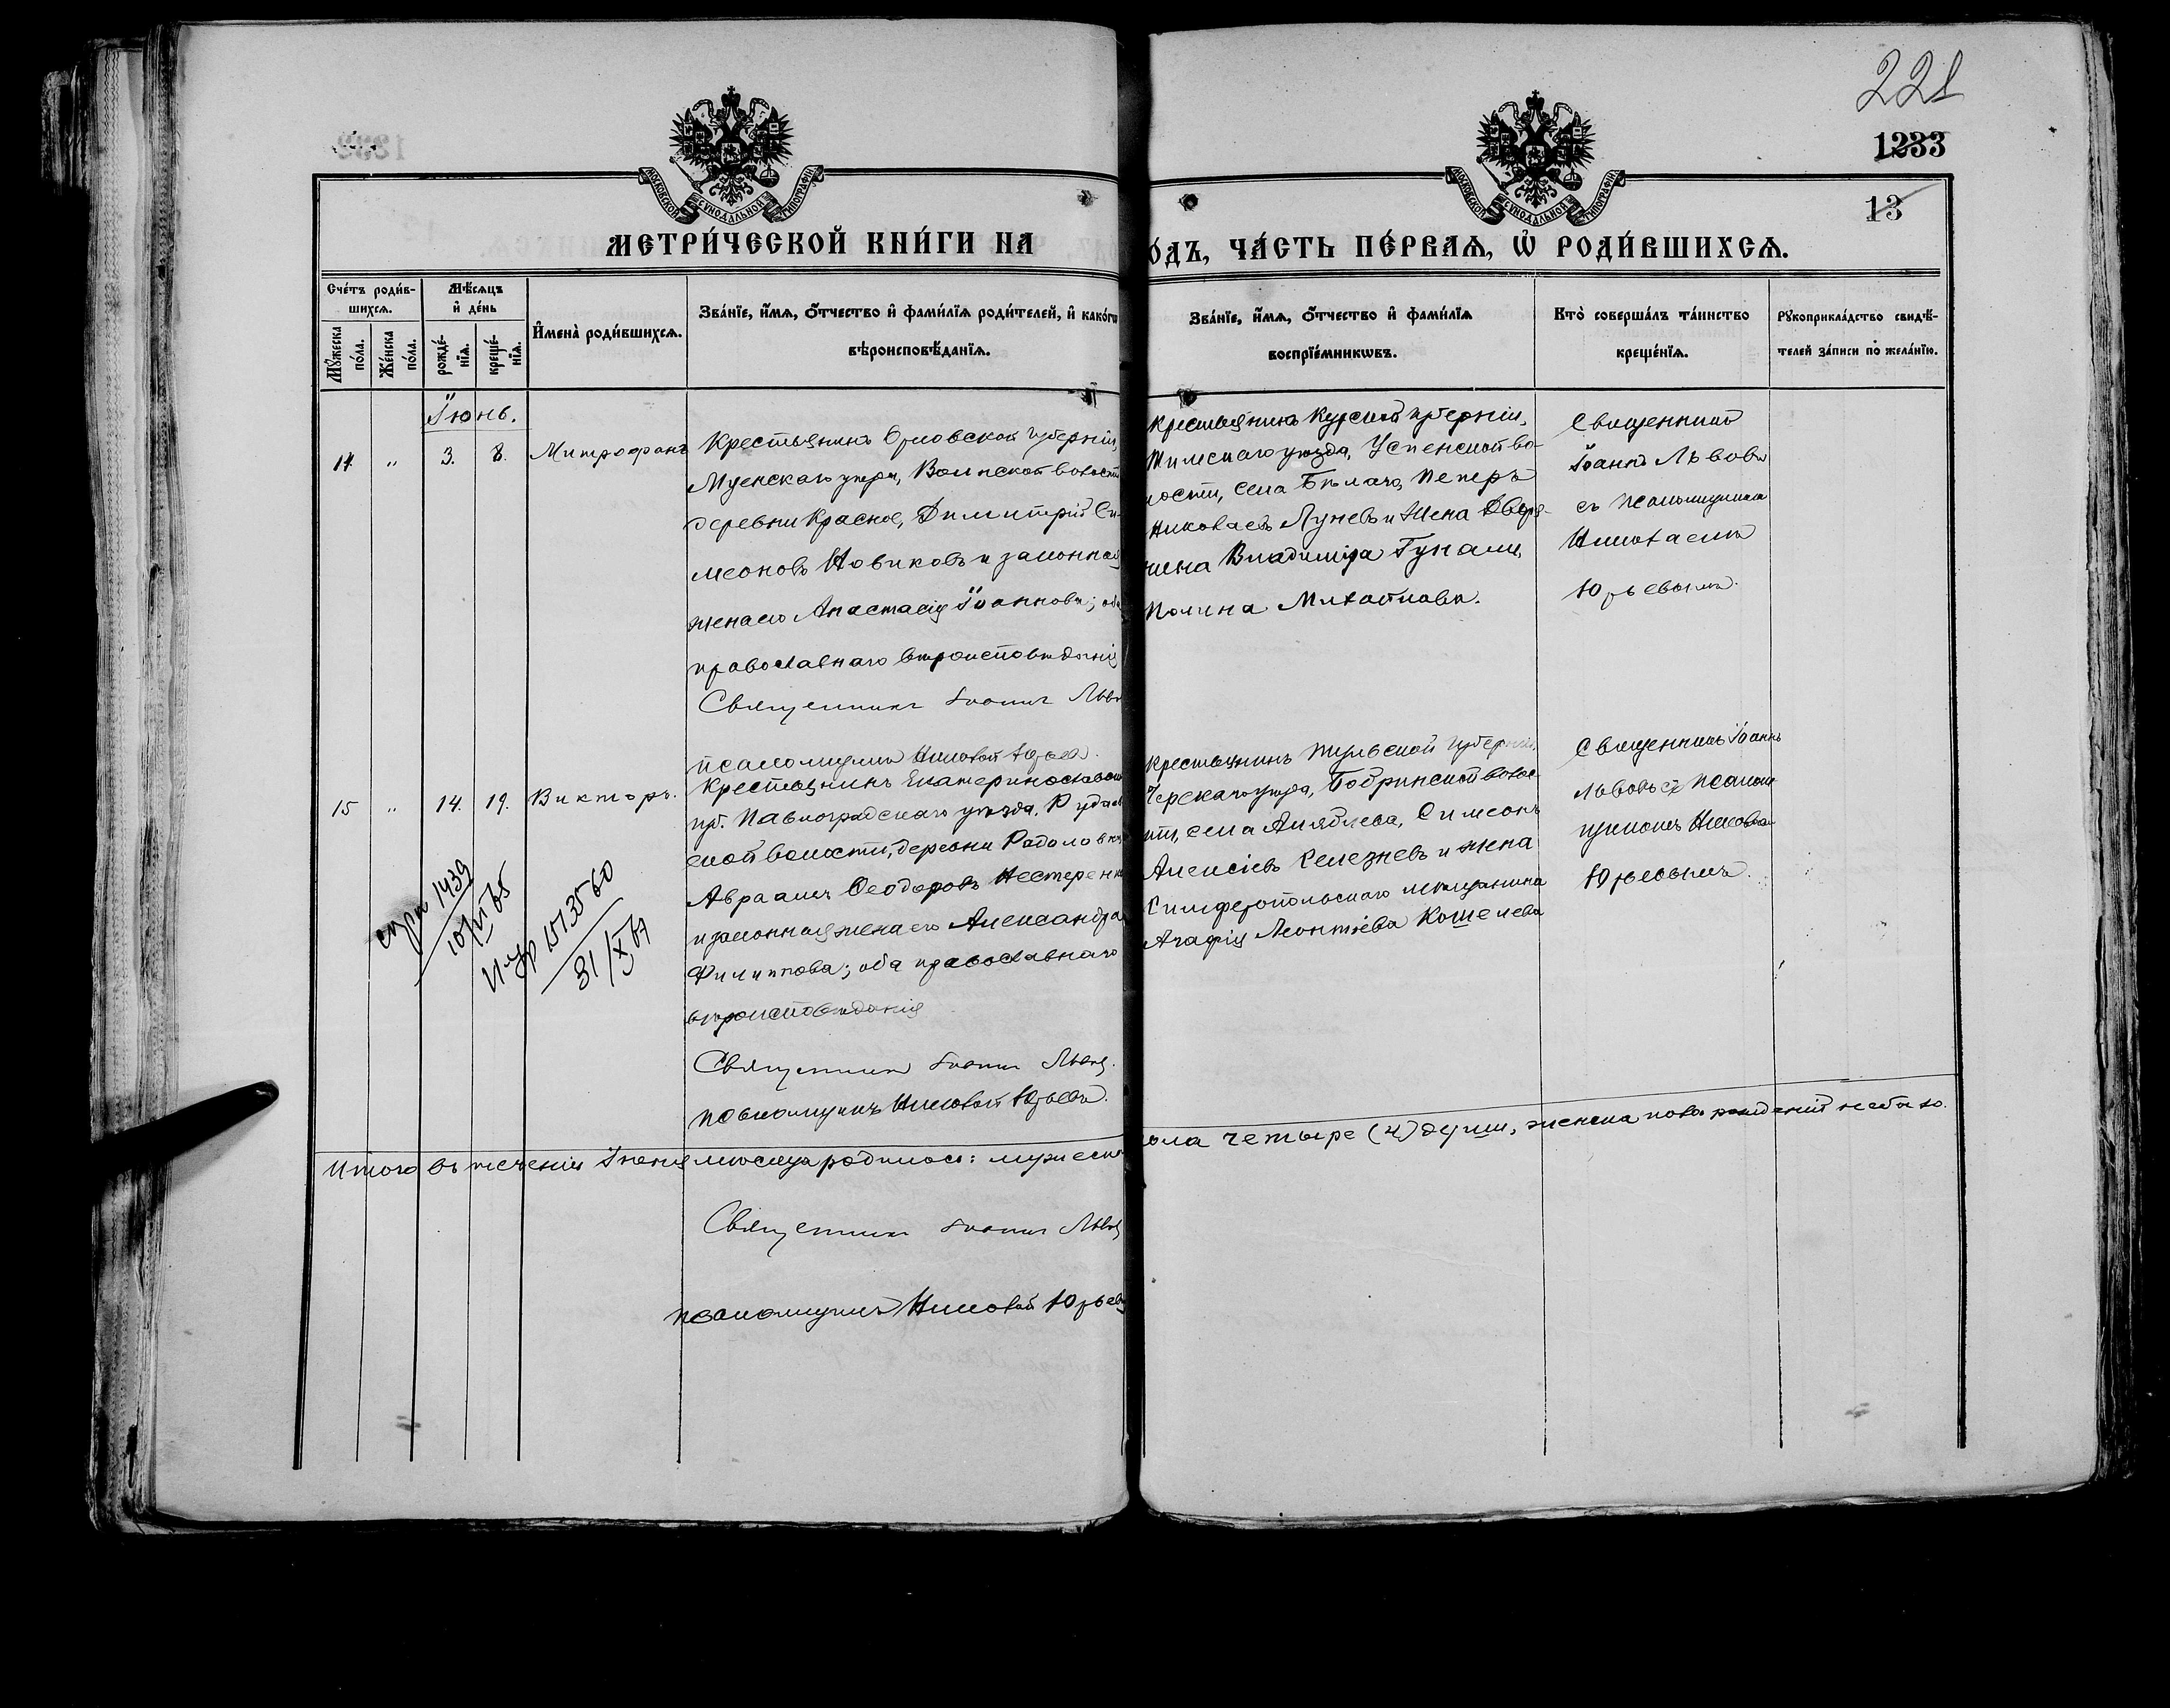 221
1233
13
МОСКОВСКОЙ СѴНОДАЛЬНОЙ ТИПОГРАФІИ
МОСКОВСКОЙ СѴНОДАЛЬНОЙ ТИПОГРАФІИ
МЕТРИ́ЧЕСКОЙ КНИ́ГИ НА
О́ДЪ, ЧА́СТЬ ПЕ́РВАѦ, Ѿ РОДИ́ВШИХСѦ.
Сче́тъ роди́в-
шихсѧ.
Мꙋ́жеска по́ла.
Же́нска по́ла.
Мѣ́сѧцъ
и҆ де́нь
рожде́-
нїѧ.
креще́-
нїѧ.
И҆мена̀ роди́вшихсѧ.
Зва́нїе, и҆́мѧ, ѻ҆́тчество и҆ фами́лїѧ роди́телей, и҆ како́гѡ
вѣроисповѣ́данїѧ.
Зва́нїе, и҆́мѧ, ѻ҆́тчество и҆ фами́лїѧ
воспрїе́мникѡвъ.
Кто̀ соверша́лъ та́инство
креще́нїѧ.
Рꙋкоприкла́дство свидѣ́-
телей за́писи по жела́нїю.
Іюнь.
14. " 3. 8. Митрофанъ
Крестьянинъ Орловской губерніи,
Мценскаго уѣзда, Воинской волости
деревни Красное, Димитрій Си-
меоновъ Новиковъ и законная
жена его Анастасія Іоаннова; оба
православнаго вѣроисповѣданія
Священникъ Іоаннъ Львов
псаломщикъ Николай Юрьевъ.
Крестьянинъ Курской губерніи,
Тимскаго уѣзда, Успенской во-
лости, села Бѣлаго, Петръ
Николаевъ Луневъ и жена Дворя-
нина Владиміра
Полина Михайлова.
Священникъ
Іоаннъ Львовъ
съ псаломщикомъ
Николаемъ
Юрьевымъ.
15 " 14. 19. Викторъ.
Крестьянинъ Екатеринославской
губ. Павлоградскаго уѣзда,
ской волости, деревни
Авраамъ Ѳеодоровъ Нестеренко
и законная жена его Александра
Филиппова; оба православнаго
вѣроисповѣданія
Священникъ Іоаннъ Львов
псаломщикъ Николай Юрьевъ.
Крестьянинъ Тульской губерніи,
Черскаго уѣзда, Бобринской волос-
ти, села, Симеонъ
Алексіевъ Селезневъ и жена
Симферопольскаго мѣщанина
Агафія Леонтіева Кошелева
Священникъ Іоаннъ
Львовъ съ псалом-
щикомъ Николаемъ
Юрьевымъ.
спр 1439
10/VI 65
31/X 67
Итого въ теченіи Іюня мѣсяца родилось: мужеска
пола четыре (4) души, женска пола рожденій не было.
Священникъ Іоаннъ Львов
псаломщикъ Николай Юрьевъ